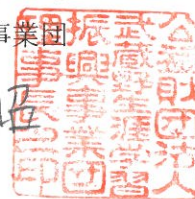 事業団
公益財団法人
武蔵野生涯学習
振興事業団
理事長之印